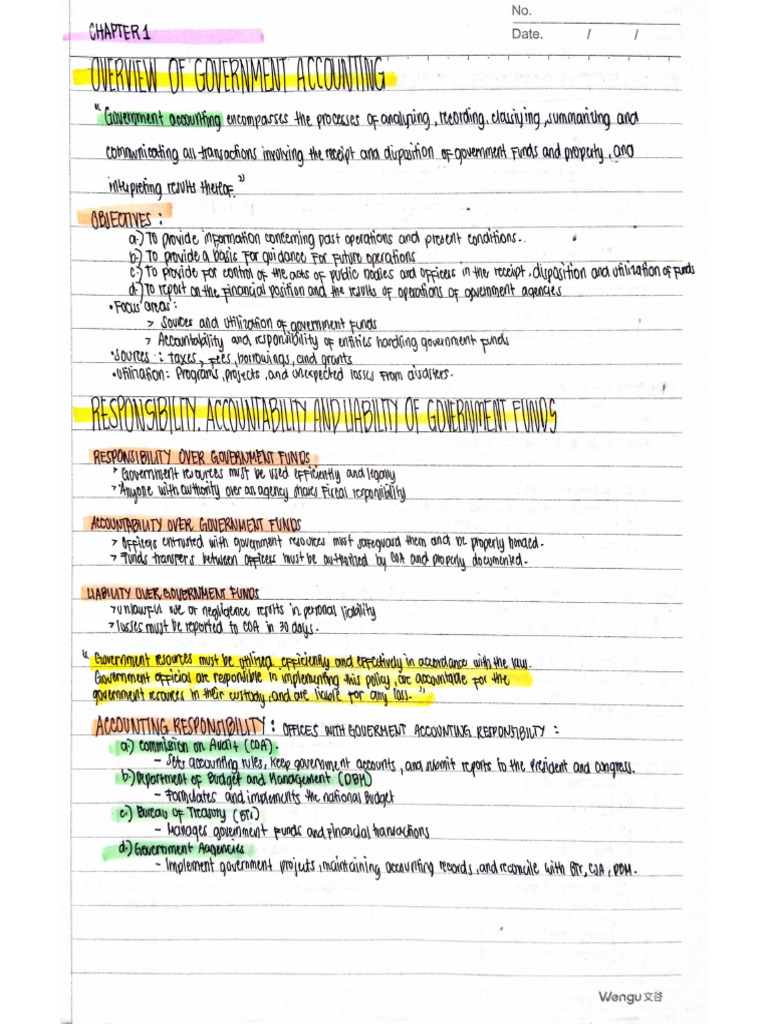 No.
CHAPTER 1
Date. / /
OVERVIEW OF GOVERNMENT ACCOUNTING
"Government accounting encompasses the processes of analyzing, recording, classifying, summarizing and
communicating all transactions involving the receipt and disposition of government funds and property, and
interpreting results thereof."
OBJECTIVES:
a.) To provide information concerning past operations and present conditions.
b.) To provide a basis for guidance for future operations
c.) To provide for control of the acts of public bodies and officers in the receipt, disposition and utilization of funds
d.) To report on the financial position and the results of operations of government agencies
•Focus areas:
> Sources and utilization of government funds
> Accountability and responsibility of entities handling government funds
•Sources: taxes, fees, borrowings, and grants
•Utilization: Programs, projects, and unexpected losses from disasters.
RESPONSIBILTY, ACCOUNTABILITY AND LIABILTY OF GOVERNMENT FUNDS
RESPONSIBILITY OVER GOVERNMENT FUNDS
> Government resources must be used efficiently and legally
> Anyone with authority over an agency shares fiscal responsibility
ACCOUNTABILITY OVER GOVERNMENT FUNDS
> Officers entrusted with government resources must safeguard them and be properly bonded.
> Funds transfers between officers must be authorized by COA and properly documented.
LIABILITY OVER GOVERNMENT FUNDS
> unlawful use or negligence results in personal liability
> losses must be reported to COA in 30 days.
"Government resources must be utilized efficiently and effectively in accordance with the law.
Government official are responsible in implementing this policy, are accountable for the
government resources in their custody, and are liable for any loss."
ACCOUNTING RESPONSIBILITY: OFFICES WITH GOVERMENT ACCOUNTING RESPONSIBILTY:
a.) Commission on Audit (COA).
- Sets accounting rules, keep government accounts, and submit reports to the President and congress.
b.) Department of Budget and Management (DBM)
- Formulates and implements the national Budget
c.) Bureau of Treasury (BTr)
- Manages government funds and financial transactions
d.) Government Aagencies
- Implement government projects, maintaining accounting records, and reconcile with BTr, COA, DBM.
Wengu 文谷